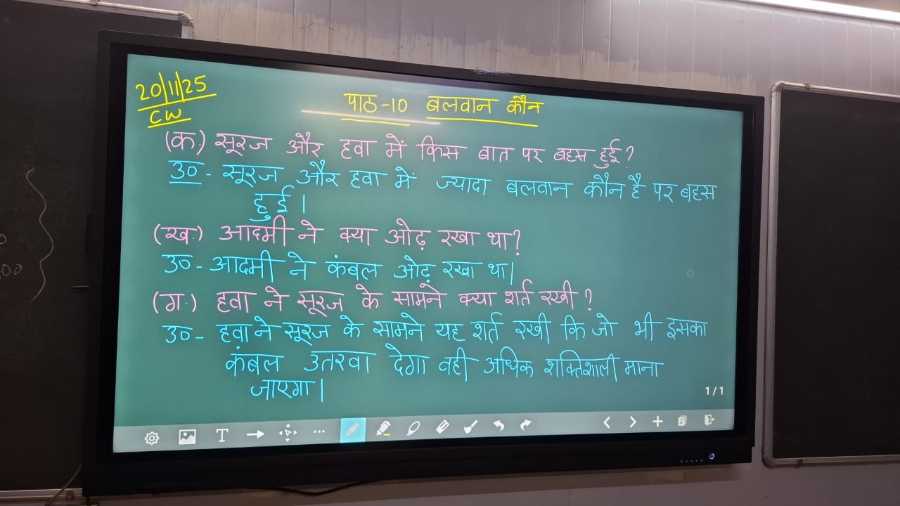 20/11/25
CW
पाठ-10 बलवान कौन
(क) सूरज और हवा में किस बात पर बहस हुई?
उ०- सूरज और हवा में ज्यादा बलवान कौन है पर बहस
हुई।
(ख) आदमी ने क्या ओढ़ रखा था?
उ०- आदमी ने कंबल ओढ़ रखा था।
(ग.) हवा ने सूरज के सामने क्या शर्त रखी?
उ०- हवा ने सूरज के सामने यह शर्त रखी कि जो भी इसका
कंबल उतरवा देगा वही अधिक शक्तिशाली माना
जाएगा।
1/1
T